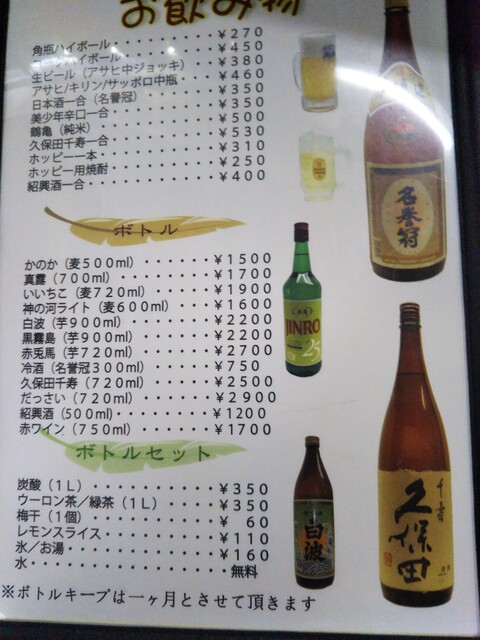 お飲み物
角瓶ハイボール・・・・・・・・・・¥270
ハイボール・・・・・・・・・・¥450
生ビール（アサヒ中ジョッキ）・・・・・¥380
アサヒ/キリン/サッポロ中瓶・・・・・¥460
日本酒一合（名誉冠）・・・・・・・・¥350
美少年辛口一合・・・・・・・・・・¥350
鶴亀（純米）・・・・・・・・・・・¥500
久保田千寿一合・・・・・・・・・・¥530
ホッピー一本・・・・・・・・・・・¥310
ホッピー用焼酎・・・・・・・・・・¥250
紹興酒一合・・・・・・・・・・・・¥400
ボトル
かのか（麦500ml）・・・・・・・・¥1500
真露（700ml）・・・・・・・・・・¥1700
いいちこ（麦720ml）・・・・・・・¥1900
神の河ライト（麦600ml）・・・・・¥1600
白波（芋900ml）・・・・・・・・・¥2200
黒霧島（芋900ml）・・・・・・・・¥2200
赤兎馬（芋720ml）・・・・・・・・¥2700
冷酒（名誉冠300ml）・・・・・・・¥750
久保田千寿（720ml）・・・・・・・¥2500
だっさい（720ml）・・・・・・・・¥2900
紹興酒（500ml）・・・・・・・・・¥1200
赤ワイン（750ml）・・・・・・・・¥1700
ボトルセット
炭酸（1L）・・・・・・・・・・・・¥350
ウーロン茶／緑茶（1L）・・・・・・¥350
梅干（1個）・・・・・・・・・・・¥ 60
レモンスライス・・・・・・・・・・¥110
氷／お湯・・・・・・・・・・・・・¥160
水・・・・・・・・・・・・・・・・無料
※ボトルキープは一ヶ月とさせて頂きます
名誉冠
JINRO
25
白波
千寿
久保田